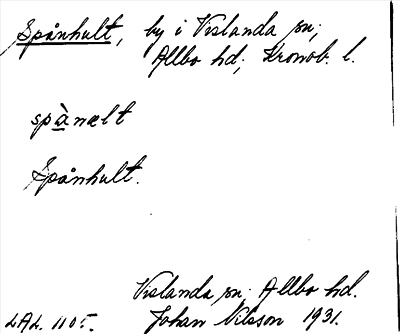 Spånhult, by i Vislanda sn,
Allbo hd, Kronob. l.
spànælt
Spånhult.
Vislanda sn, Allbo hd.
LAL. 1105. Johan Nilsson 1931.